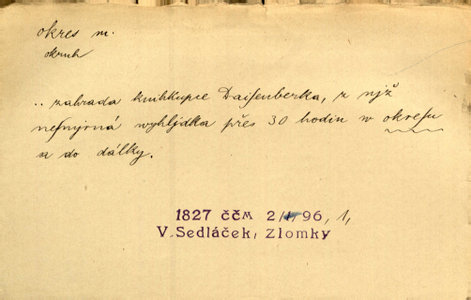 okres m.
okruh
.. zahrada knihkupce Daisenberka, z njž
nesmjrná wyhljdka přes 30 hodin w okresu
a do dálky.
1827 ččm 2/ 96, 1,
V. Sedláček, Zlomky